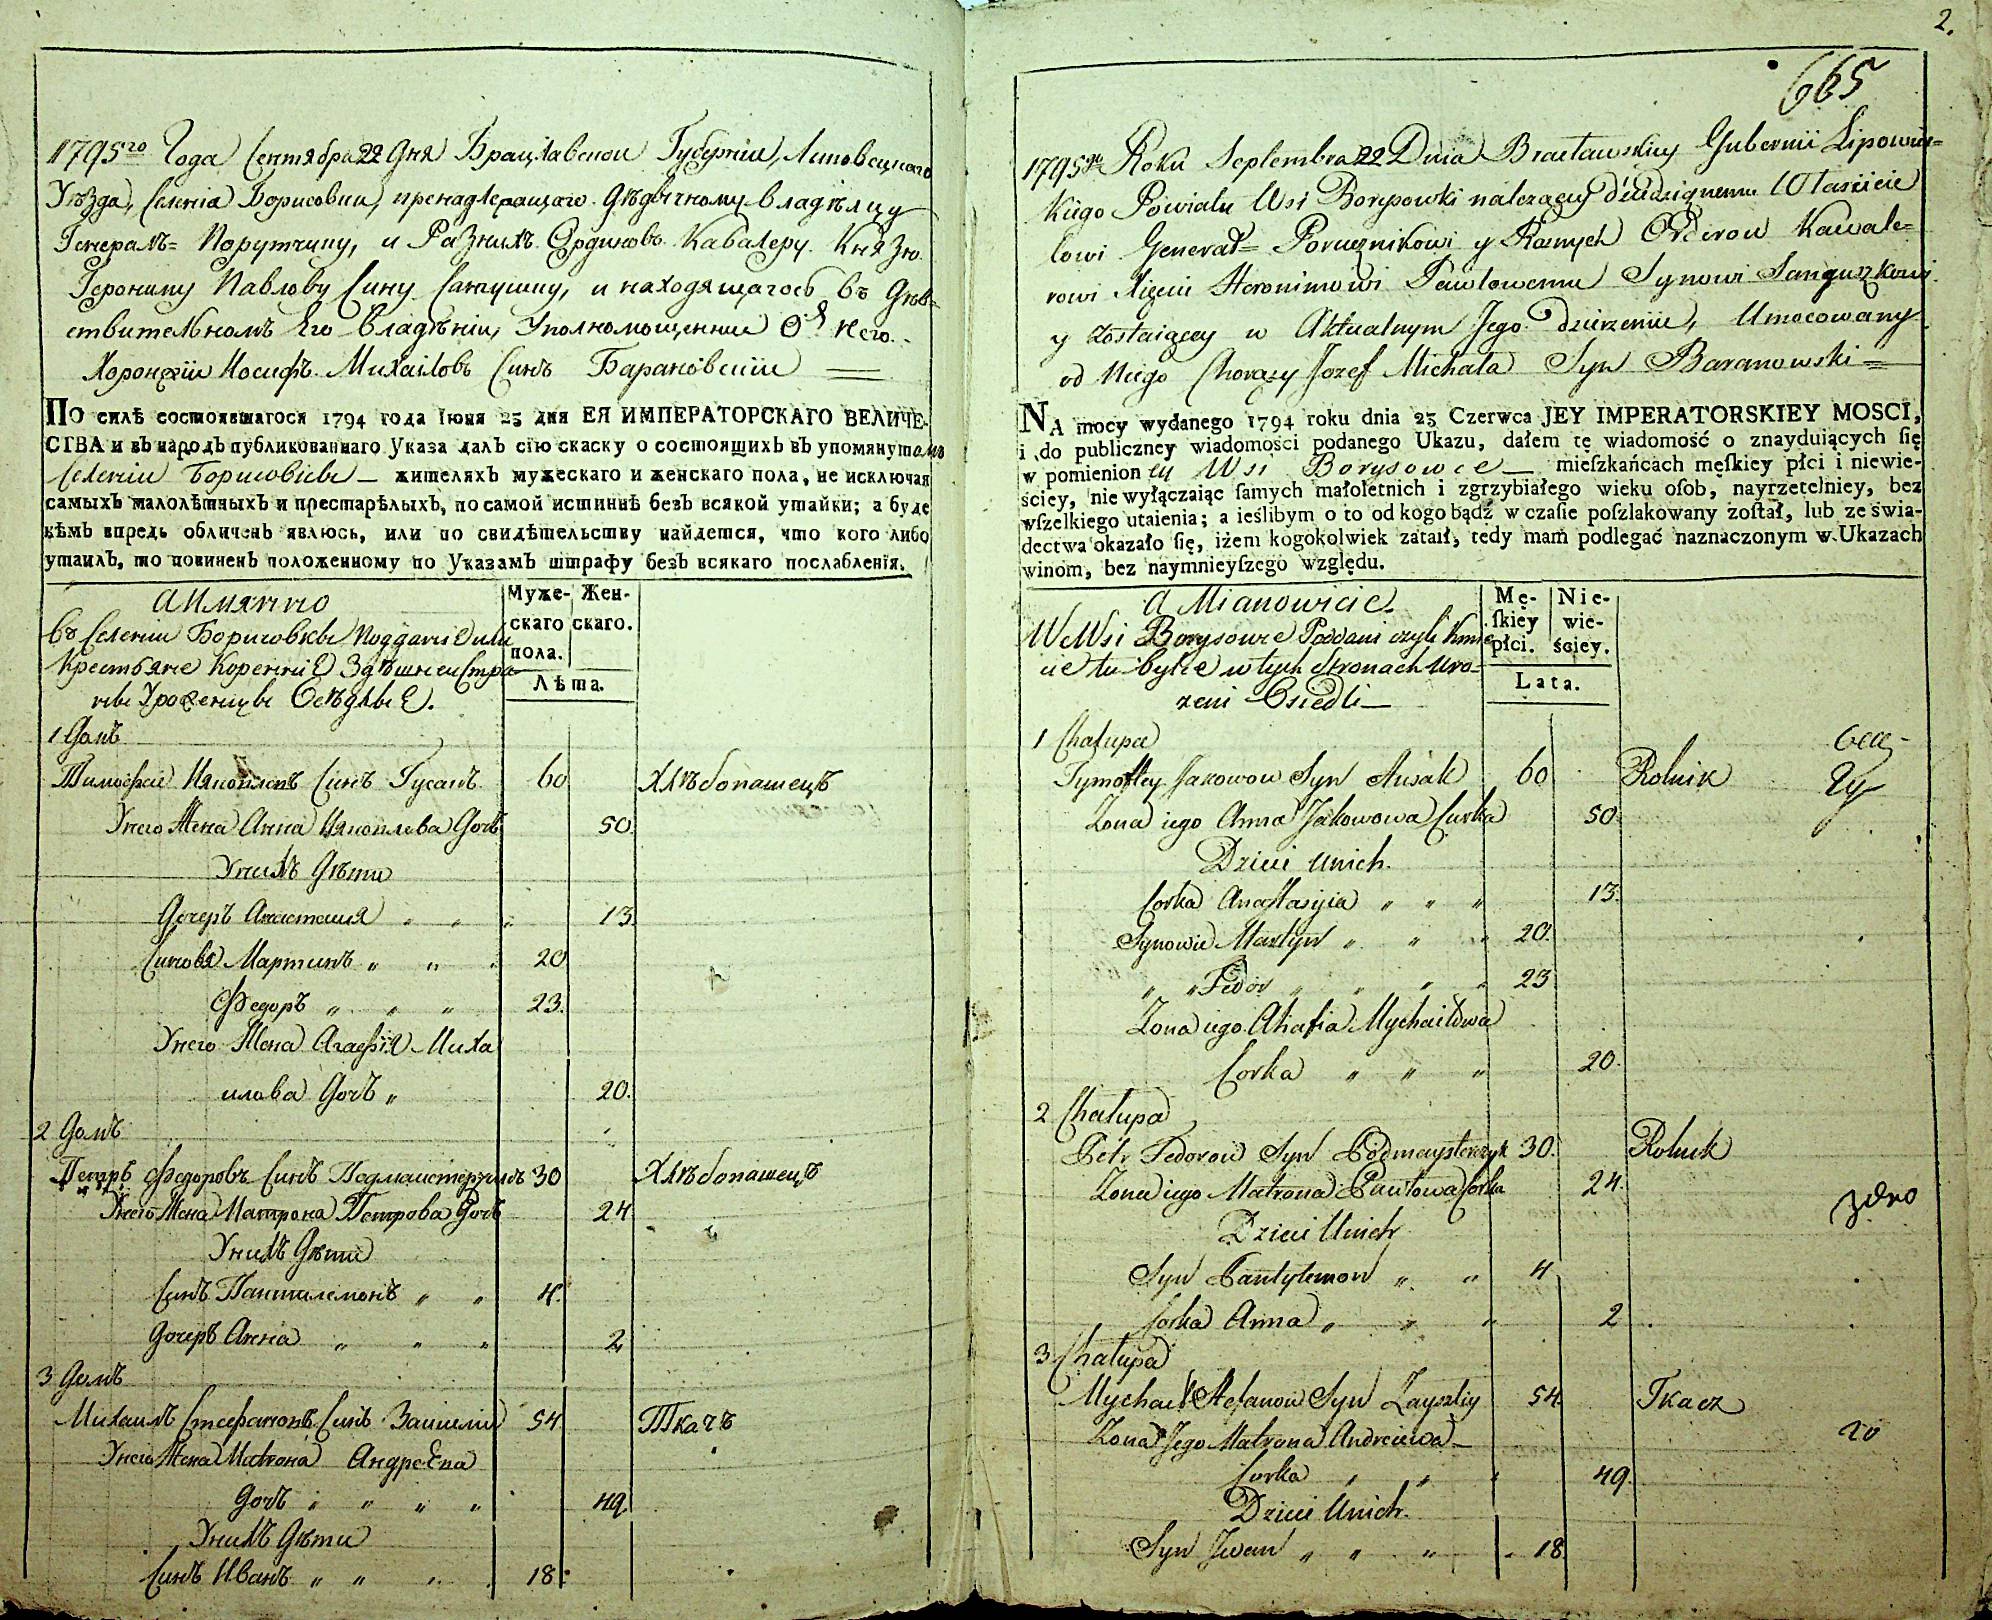 1795го Года Сентября 22 Дня Брацлавской Губернии, Липовецкаго
Уѣзда, Селения Борисовки, пренадлежащаго Дѣдичному владѣлцу
Генералъ= Порутчику, и Разнихъ Ординовъ Кавалеру Князю
Герониму Павлову Сину Сангушку, и находящагось въ Дѣй=
ствительномъ Его владѣнии, Уполномощенний От Него
Хоронжий Иосифъ Михайловъ Синъ Барановский
По силѣ состоявшагося 1794 года Іюня 23 дня ЕЯ ИМПЕРАТОРСКАГО ВЕЛИЧЕ-
СТВА и въ народъ публикованнаго Указа далъ сію скаску о состоящихъ въ упомянутомъ
Селении Борисовкы — жителяхъ мужескаго и женскаго пола, не исключая
самыхъ малолѣтныхъ и престарѣлыхъ, по самой истиннѣ безъ всякой утайки; а буде
кѣмъ впредь обличенъ явлюсь, или по свидѣтельству найдется, что кого либо
утаилъ, то повиненъ положенному по Указамъ штрафу безъ всякаго послабленія.
А имянно
Муже-скаго пола. Жен-скаго.
Лѣта.
въ Селении Борисовкы Поддание или
Крестьяне Коренние Здѣшнеи Стра
ны Уроженцы Осѣдлые.
1 Домъ
Тимофей Яковлевъ Синъ Гусакъ 60 Хлѣбопашецъ
У него Жена Анна Яковлева Дочь 50
У нихъ Дѣти
Дочеръ Анастасия „ „ „ 13
Синовя Мартинъ „ „ 20
Федоръ „ „ „ 23.
У него Жена Агафия Миха
илова Дочь „ 20.
2 Домъ
Петръ Федоровъ Синъ Подмайстерчукъ 30 Хлѣбопашецъ
У него Жена Матрона Петрова Дочь 24
У нихъ Дѣти
Синъ Пантилемонъ „ „ 4.
Дочеръ Анна „ „ „ 2
3 Домъ
Михаилъ Стефановъ Синъ Зайшлий 54 Ткачъ
У него Жена Матрона Андреева
Дочь „ „ „ „ 49.
У нихъ Дѣти
Синъ Иванъ „ „ „ 18.
2.
665
1795go Roku Septembra 22 Dnia Bracławskiey Gubernii Lipowiec=
kiego Powiatu Wsi Borysowki należącey dziedzicznemu Właścicie
lowi Generał= Porucznikowi y Roznych Orderow Kawale=
rowi Xięciu Heronimowi Pawłowemu Synowi Sanguszkowi
y zostaiącey w Aktualnym Jego dzierzeniu, Umocowany
od Niego Chorązy Jozef Michała Syn Baranowski=
Na mocy wydanego 1794 roku dnia 23 Czerwca JEY IMPERATORSKIEY MOSCI,
i do publiczney wiadomości podanego Ukazu, dałem tę wiadomość o znayduiących ſię
w pomienioney Wsi Borysowce — mieſzkańcach męſkiey płci i niewie-
ściey, nie wyłączaiąc ſamych małoletnich i zgrzybiałego wieku oſob, nayrzetelniey, bez
wſzelkiego utaienia; a ieślibym o to od kogo bądź w czaſie poſzlakowany zoſtał, lub ze świa-
dectwa okazało ſię, iżem kogokolwiek zataił, tedy mam podlegać naznaczonym w Ukazach
winom, bez naymnieyſzego względu.
A Mianowicie.
Mę-ſkiey płci. Nie-wie-ściey.
Lata.
We Wsi Borysowce Poddani czyli Kmie
cie tu bylce w tych Stronach Uro=
zeni Osiedli —
1 Chałupa
Tymoftey Jakowow Syn Husak 60 Rolnik
Zona iego Anna Jakowowa Curka 50
Dzieci Unich.
Corka Anastasyia „ „ „ 13.
Synowie Martyn „ „ „ 20.
„ „ Fedor „ „ „ „ 23
Zona iego Ahafia Mychaiłowa
Corka „ „ „ 20.
2 Chałupa
Petr Fedorow Syn Podmaysterczyk 30. Rolnik
Zona iego Matrona Pawłowa Corka 24.
Dzieci Unich
Syn Pantylemon „ „ 4
Corka Anna „ „ „ 2
3 Chałupa
Mychaił Stefanow Syn Zayszliy 54. Tkacz
Zona Jego Matrona Andreiewa —
Corka „ „ „ 49.
Dzieci Unich.
Syn Jwan „ „ „ 18